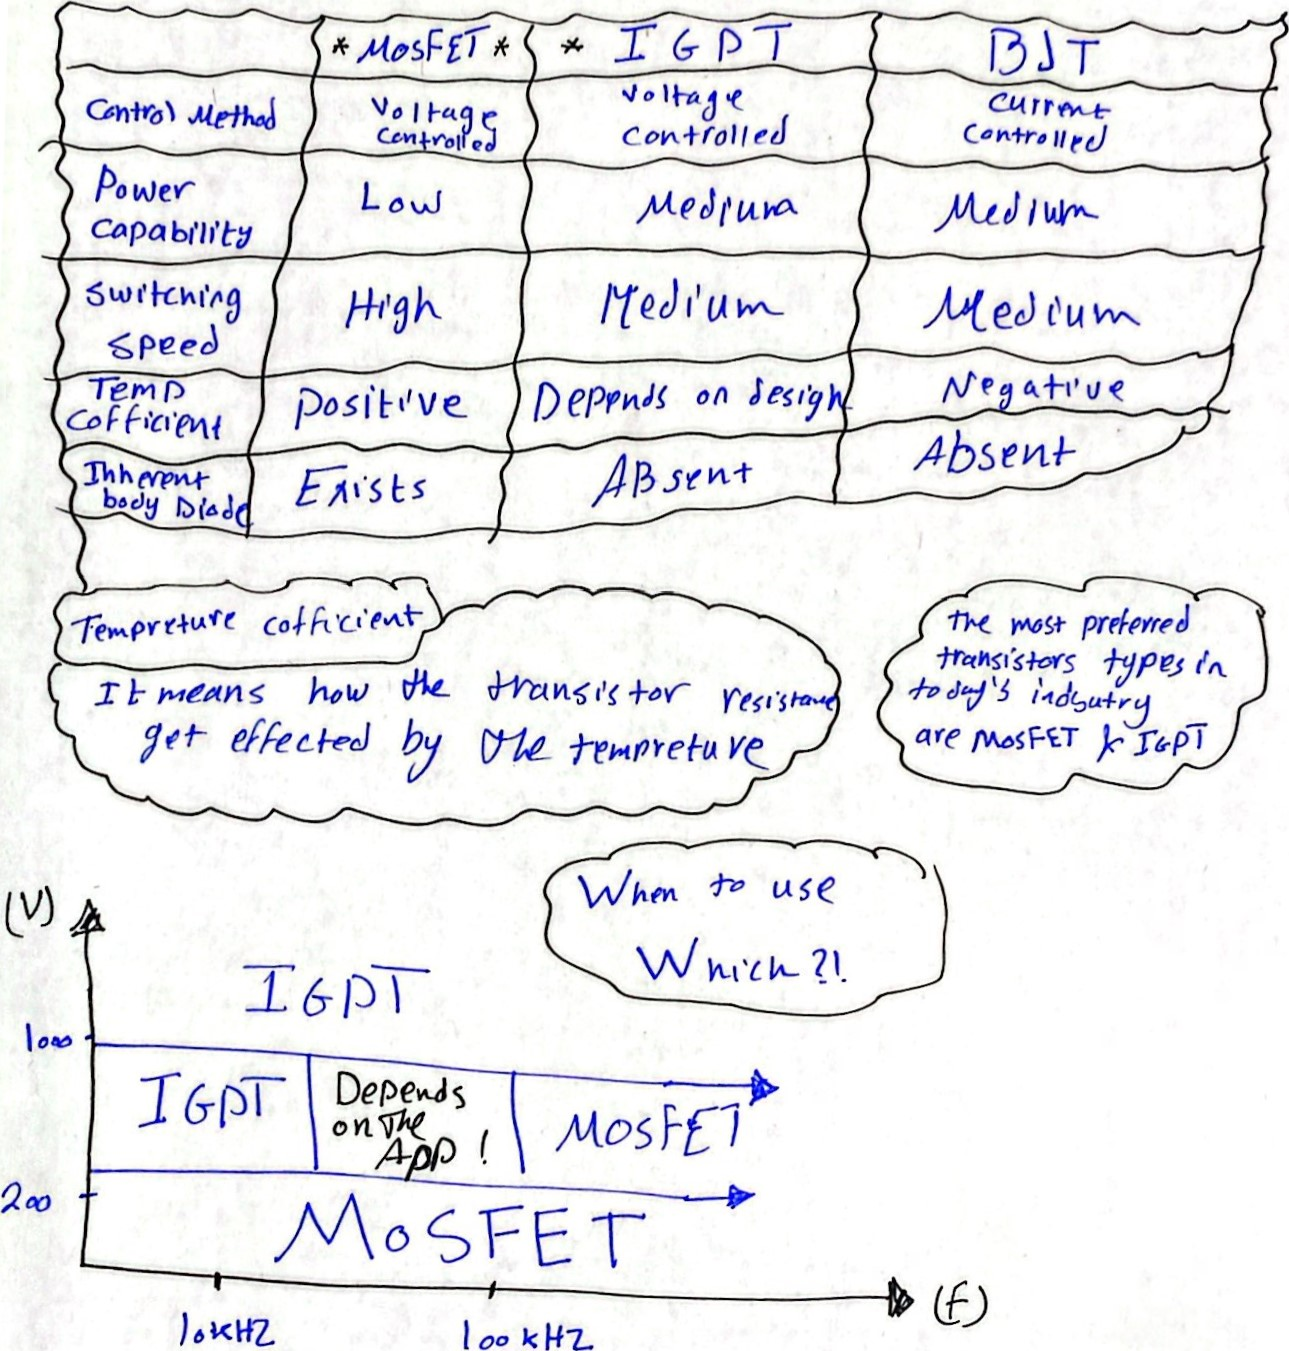 * MosFET * * IGPT BJT
Control Method Voltage controlled voltage controlled current controlled
Power capability Low Medium Medium
switching speed High Medium Medium
Temp Cofficient positive Depends on design Negative
Inherent body Diode Exists ABsent Absent
Tempreture cofficient
It means how the transistor resistance
get effected by the tempreture
the most preferred
transistors types in
today's indsutry
are MosFET & IGPT
When to use
Which ?!
(V)
IGPT
1000
IGPT
Depends
on The
App !
MOSFET
200
MoSFET
10kHZ
100kHZ
(f)